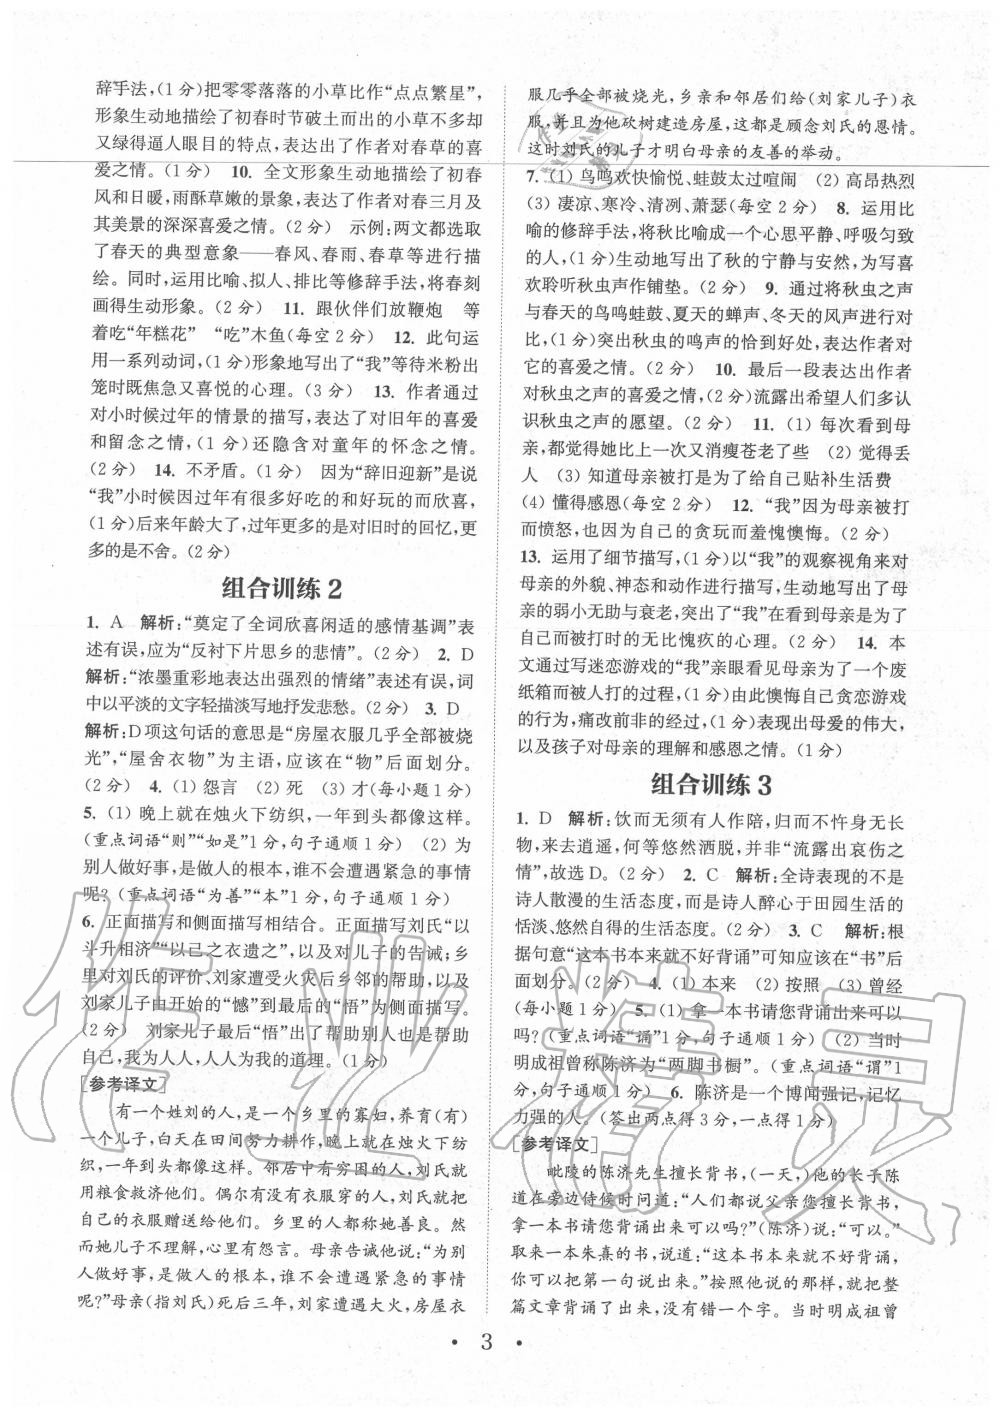 辞手法,(1分)把零零落落的小草比作“点点繁星”,
形象生动地描绘了初春时节破土而出的小草不多却
又绿得逼人眼目的特点,表达了作者对春草的喜
爱之情。(1分) 10. 全文形象生动地描绘了初春
风和日暖,雨酥草嫩的景象,表达了作者对春三月及
其美景的深深喜爱之情。(2分) 示例:两文都选取
了春天的典型意象——春风、春雨、春草等进行描
绘。同时,运用比喻、拟人、排比等修辞手法,将春刻
画得生动形象。(2分) 11. 跟伙伴们放鞭炮 等
着吃“年糕花” “吃”木鱼(每空2分) 12. 此句运
用一系列动词,(1分)形象地写出了“我”等待米粉出
笼时既焦急又喜悦的心理。(3分) 13. 作者通过
对小时候过年的情景的描写,表达了对旧年的喜爱
和留念之情,(1分)还隐含对童年的怀念之情。
(2分) 14. 不矛盾。(1分) 因为“辞旧迎新”是说
“我”小时候因过年有很多好吃的和好玩的而欣喜,
(1分)后来年龄大了,过年更多的是对旧时的回忆,更
多的是不舍。(2分)
组合训练2
1. A 解析:“奠定了全词欣喜闲适的感情基调”表
述有误,应为“反衬下片思乡的悲情”。(2分) 2. D
解析:“浓墨重彩地表达出强烈的情绪”表述有误,词
中以平淡的文字轻描淡写地抒发悲愁。(2分) 3. D
解析:D项这句话的意思是“房屋衣服几乎全部被烧
光”,“屋舍衣物”为主语,应该在“物”后面划分。
(2分) 4. (1)怨言 (2)死 (3)才(每小题1分)
5. (1)晚上就在烛火下纺织,一年到头都像这样。
(重点词语“则”“如是”1分,句子通顺1分) (2)为
别人做好事,是做人的根本,谁不会遭遇紧急的事情
呢?(重点词语“为善”“本”1分,句子通顺1分)
6. 正面描写和侧面描写相结合。正面描写刘氏“以
斗升相济”“以己之衣遗之”,以及对儿子的告诫;乡
里对刘氏的评价、刘家遭受火灾后乡邻的帮助,以及
刘家儿子由开始的“憾”到最后的“悟”为侧面描写。
(2分) 刘家儿子最后“悟”出了帮助别人也是帮助
自己,我为人人,人人为我的道理。(1分)
[参考译文]
有一个姓刘的人,是一个乡里的寡妇,养育(有)
一个儿子,白天在田间努力耕作,晚上就在烛火下纺
织,一年到头都像这样。邻居中有穷困的人,刘氏就
用粮食救济他们。偶尔有没有衣服穿的人,刘氏就
把自己的衣服赠送给他们。乡里的人都称她善良。然
而她儿子不理解,心里有怨言。母亲告诫他说:“为别
人做好事,是做人的根本,谁不会遭遇紧急的事情
呢?”母亲(指刘氏)死后三年,刘家遭遇大火,房屋衣
服几乎全部被烧光,乡亲和邻居们给(刘家儿子)衣
服,并且为他砍树建造房屋,这都是顾念刘氏的恩情。
这时刘氏的儿子才明白母亲的友善的举动。
7. (1)鸟鸣欢快愉悦、蛙鼓太过喧闹 (2)高昂热烈
(3)凄凉、寒冷、清冽、萧瑟(每空2分) 8. 运用比
喻的修辞手法,将秋夜比喻成一个心思平静、呼吸匀致
的人,生动地写出了秋的宁静与安然,为写喜
欢聆听秋虫声作铺垫。(3分) 9. 通过将秋虫之声
与春天的鸟鸣蛙鼓、夏天的蝉声、冬天的风声进行对
比,(1分)突出秋虫的鸣声的恰到好处,表达作者对
它的喜爱之情。(2分) 10. 最后一段表达出作者
对秋虫之声的喜爱之情,(2分)流露出希望人们多认
识秋虫之声的愿望。(2分) 11. (1)每次看到母
亲,都觉得她比上一次又消瘦苍老了些 (2)觉得丢
人 (3)知道母亲被打是为了给自己贴补生活费
(4)懂得感恩(每空2分) 12. “我”因为母亲被打
而愤怒,也为自己的贪玩而羞愧懊悔。(2分)
13. 运用了细节描写,(1分)以“我”的观察视角来对
母亲的外貌、神态和动作进行描写,生动地写出了母
亲的弱小无助与衰老,突出了“我”在看到母亲是为了
自己而被打时的无比愧疚的心理。(2分) 14. 本
文通过写迷恋游戏的“我”亲眼看见母亲为了一个废
纸箱而被人打的过程,(1分)由此懊悔自己贪恋游戏
的行为,痛改前非的经过,(1分)表现出母爱的伟大,
以及孩子对母亲的理解和感恩之情。(1分)
组合训练3
1. D 解析:饮而无须有人作陪,归而不忤身无长
物,来去逍遥,何等悠然洒脱,并非“流露出哀伤之
情”,故选D。(2分) 2. C 解析:全诗表现的不是
诗人散漫的生活态度,而是诗人醉心于田园生活的
恬淡、悠然自得的生活态度。(2分) 3. C 解析:根
据句意“这本书本来就不好背诵”可知应该在“书”后
面划分。(2分) 4. (1)本来 (2)按照 (3)曾经
(每小题1分) 5. (1)拿一本书请您背诵出来可以
吗?(重点词语“诵”1分,句子通顺1分) (2)当时
明成祖曾称陈济为“两脚书橱”。(重点词语“谓”1
分,句子通顺1分) 6. 陈济是一个博闻强记,记忆
力强的人。(答出两点得3分,一点得1分)
[参考译文]
毗陵的陈济先生擅长背书,(一天,)他的长子陈
道在旁边侍候时问道:“人们都说父亲您擅长背书,
拿一本书请您背诵出来可以吗?”(陈济)说:“可以。”
取来一本朱熹的书,说道:“这本书本来就不好背诵,
你可以把第一句说出来。”按照他说的那样,就把整
篇文章背诵了出来,没有错一个字。当时明成祖曾
• 3 •
作业精灵